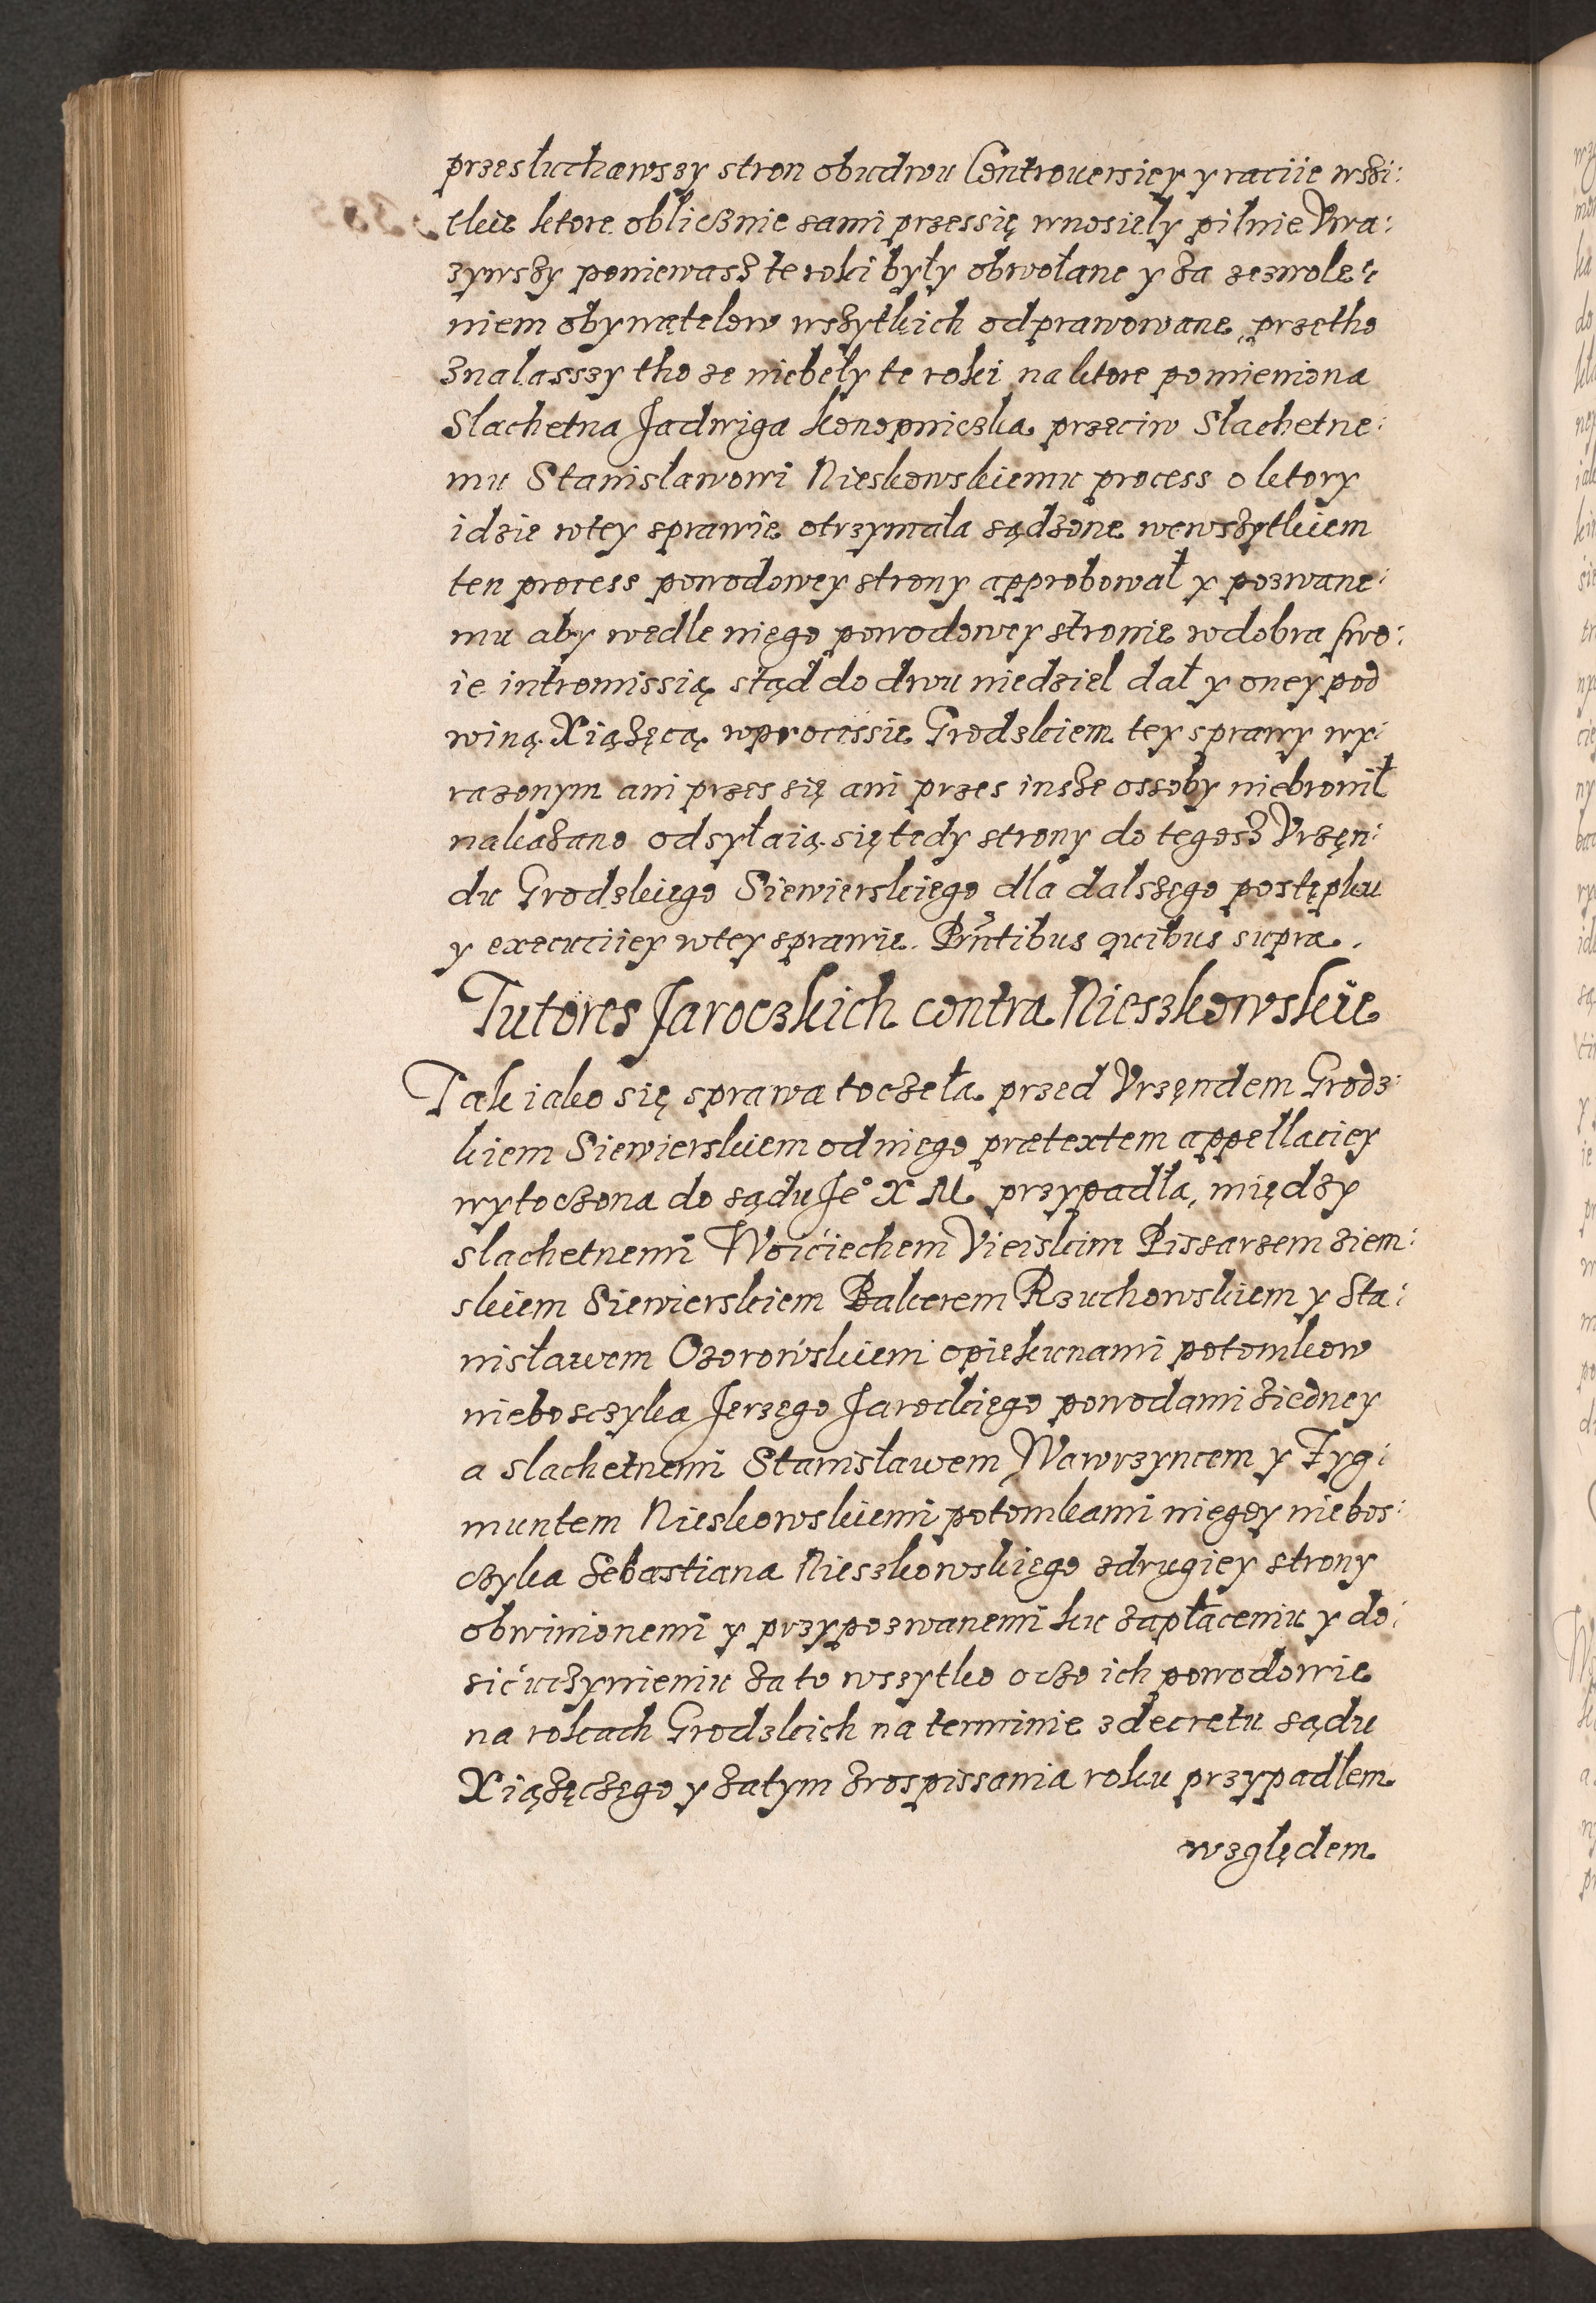 przesłuchawszy stron obudwu Controuersiey y raciie wszi:
tkie ktore oblicznie sami przessię wnosiely pilnie Vwa:
zywszy poniewasz te roki były obwołane y za zezwole:
niem obywatelow wszytkich odprawowane, przetho
Znalasszy tho ze niebeły te roki na ktore pomieniona
Slachetna Jadwiga konopniczka przeciw Slachetne:
mu Stanislawowi Nieskowskiemu process o ktory
idzie wtey sprawie otrzymała sądzone wewszytkiem
ten process powodowey strony approbował y pozwane:
mu aby wedle niego powodowey stronie wdobra swo:
ie intromissią stąd do dwu niedziel dał y oney pod
winą Xiążęcą wprocessie Grodzkiem tey sprawy wy:
razonym ani przes się ani przes insze ossoby niebronił
nakazano odsyłaią się tedy strony do tegosz Vrzęn:
du Grodzkiego Siewierskiego dla dalszego postępku
y executiiey wtey sprawie. Prntibus quibus supra.
Tutores Jaroczkich contra Nieszkowskie
Tak iako się sprawa toczeła przed Vrzęndem Grodz:
kiem Siewierskiem od niego praetextem appellaciey
wytoczona do sądu Je° X M przypadła, między
slachetnemi Woiciechem Vieiskim Pissarzem ziem:
skiem Siewierskiem Balcerem Rzuchowskiem y Sta:
nisławem Ozorowskiem opiekunami potomkow
nieboszczyka Jerzego Jarockiego powodami ziedney
a slachetnemi Stanisławem Wawrzyncem y Zyg:
muntem Nieskowskiemi potomkami niegdy niebos:
czyka Sebastiana Nieszkowskiego zdrugiey strony
obwinionemi y przypozwanemi ku zapłaceniu y do:
sić uczynieniu za to wszytko oczo ich powodowie
na rokach Grodzkich na terminie zdecretu sądu
Xiążęczego y zatym zrospissania roku przypadłem
względem